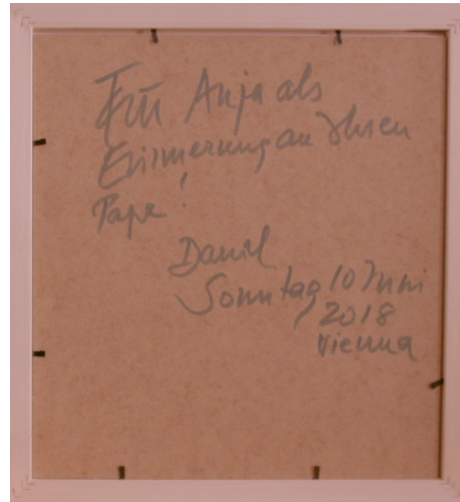 Für Anja als
Erinnerung an Ihren
Papa!
Daniel
Sonntag 10 Juni
2018
Vienna